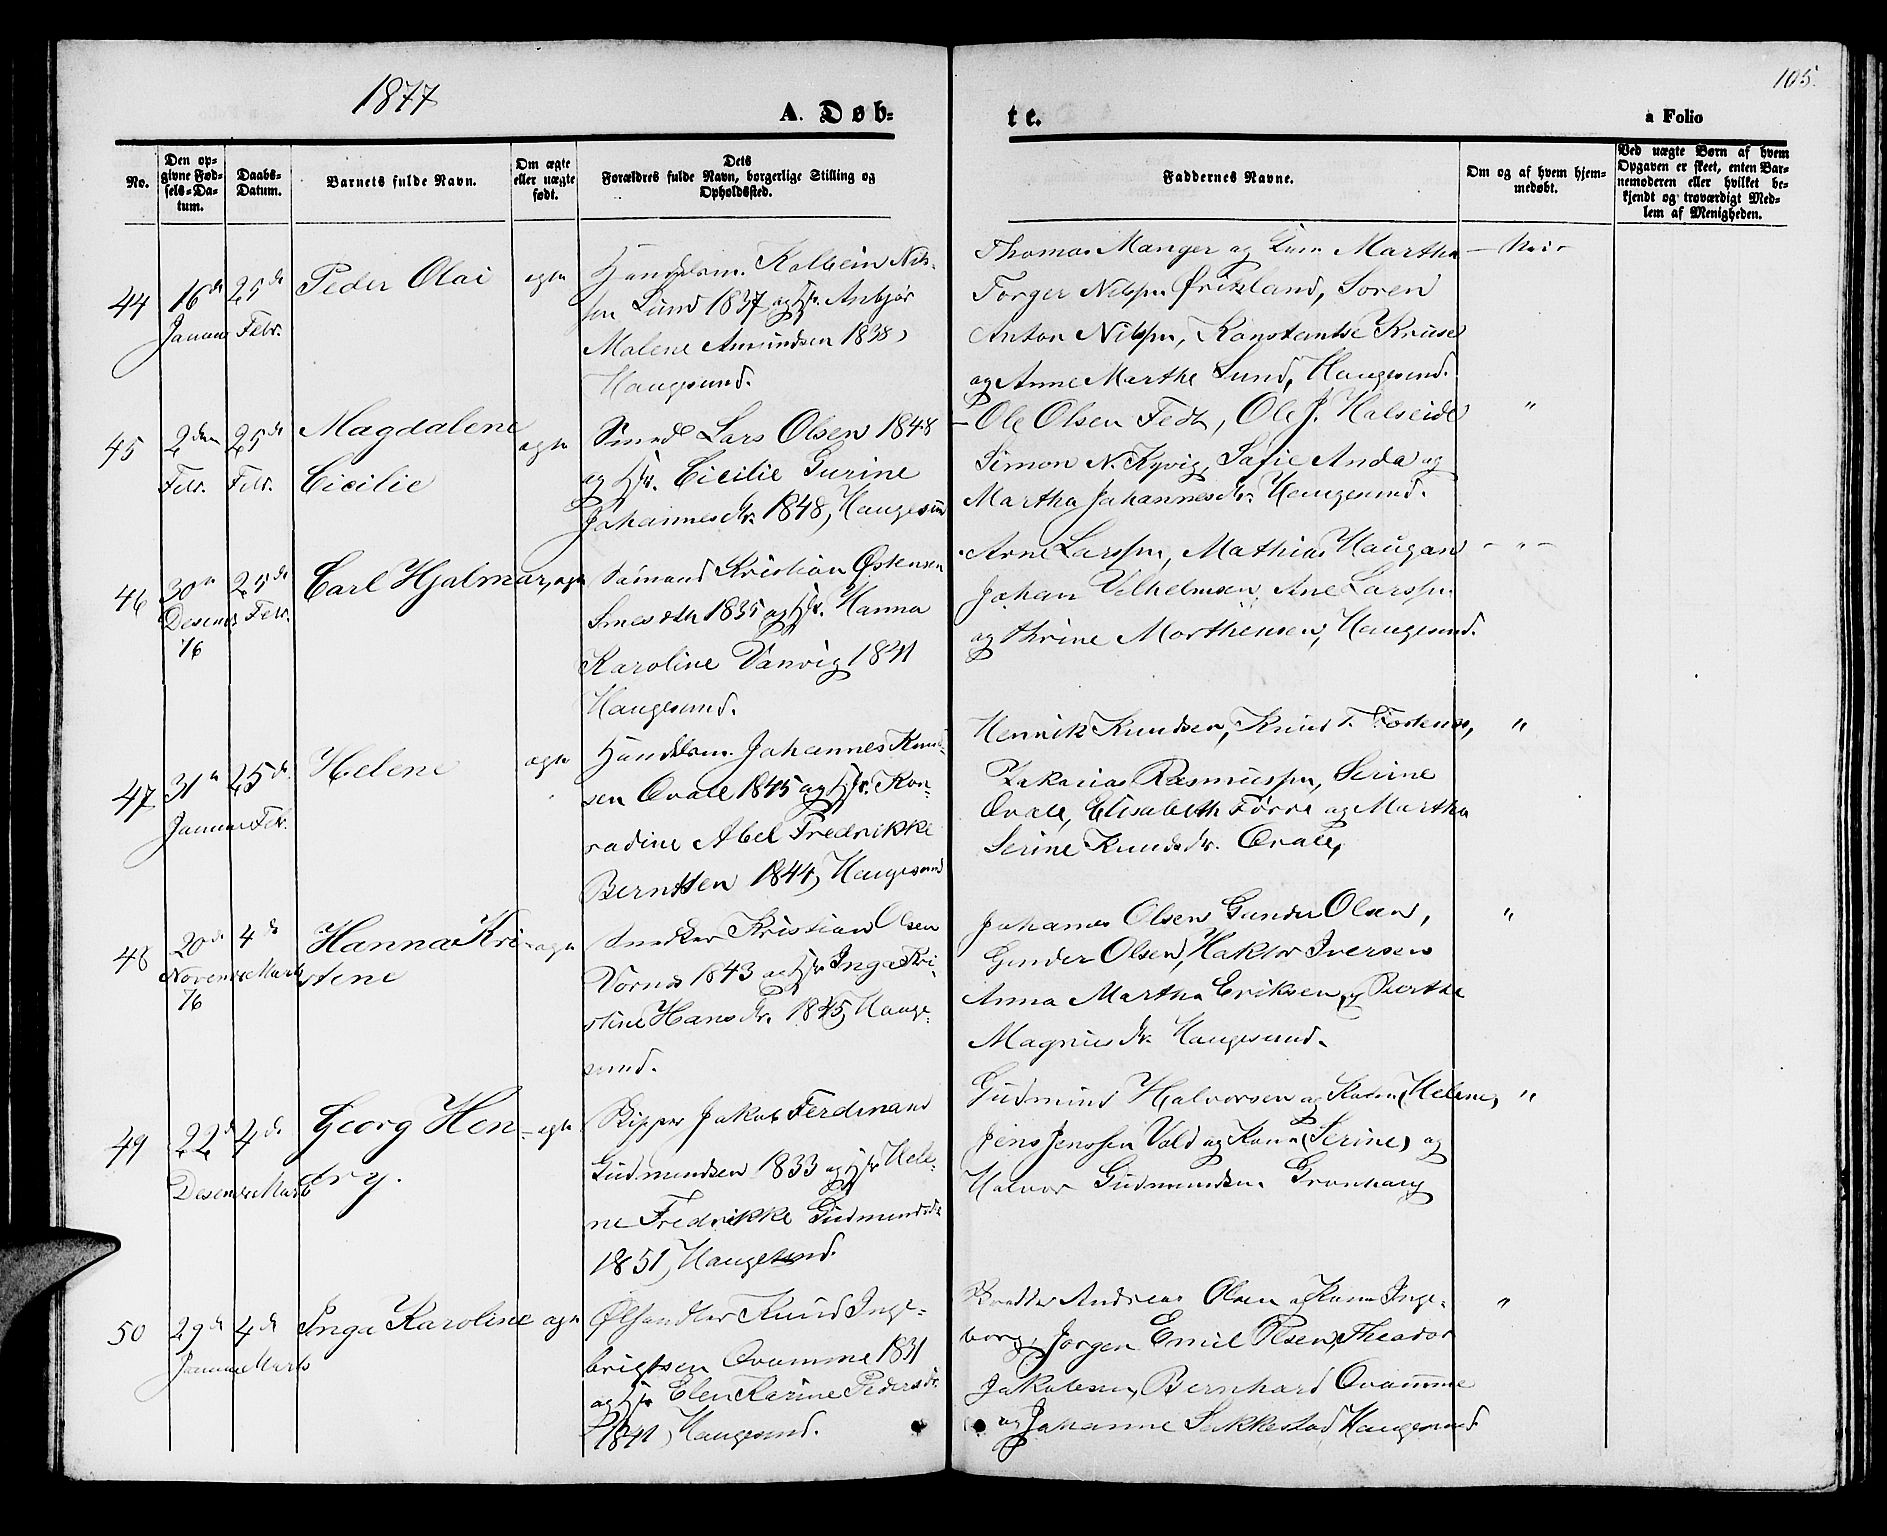 1877
105.
A. Døb-
te.
a Folio
No.
Den op-
givne Fød-
sels-Da-
tum.
Daabs-
Datum.
Barnets fulde Navn.
Om ægte
eller uægte
født.
Dets
Forældres fulde Navn, borgerlige Stilling og
Opholdssted.
Faddernes Navne.
Om og af hvem hjem-
medøbt.
Ved uægte Børn af hvem
Opgaven er skeet, enten Bar-
nemoderen eller hvilket be-
kjendt og troværdigt Med-
lem af Menigheden.
44
16de
Januar
25de
Febr.
Peder Olai
egte
Handelsm. Kolbein Nils-
sen Lund 1837 og Hstr. Anbjør
Malene Amundsen 1838,
Haugesund.
Thomas Manger og Martha
Torger Nilssen Søren
Anton Nilssen, Konstantse Kruse
og Anne Marthe Lund, Haugesund.
— Nei —
45
2den
Febr.
25de
Febr.
Magdalene
Cicilie
egte
Smed Lars Olsen 1848
og Hstr. Cicilie Gurine
Johannesdtr. 1848, Haugesund
Ole Olsen Fedt, Ole J. Halseide
Simon N. Kyvig, Sofie Anda og
Martha Johannesdtr. Haugesund.
"
46
30te
Desembr
76
25de
Febr.
Carl Hjalmar,
egte
Sømand Kristian Østensen
1835 og Hstr. Hanna
Karoline Vanvig 1841
Haugesund.
Arne Larssen, Mathias Haugan
Johan Vilhelmsen, Ane Larssen
og Thrine Morthensen, Haugesund.
— " —
47
31te
Januar
25de
Febr.
Helene
egte
Handelsm. Johannes Knud-
sen Qvale 1845 og Hstr. Kon-
radine Abel Fredrikke
Berntsen 1844, Haugesund
Henrik Knudsen, Knud T.
Zakarias Rasmussen, Serine
Qvale, Elisabeth Førre og Martha
Serine Knudsdtr. Qvale,
"
48
20de
Novembr
76
4de
Marts
Hanna Kri-
stene
egte
Snedker Kristian Olsen
Vornes 1843 og Hstr Inga Kri-
stine Hansdtr. 1845, Hauge-
sund.
Johannes Olsen, Gunder Olsen,
Gunder Olsen, Haktor Iversen
Anna Martha Eriksen, og Berthe
Magnusdtr. Haugesund.
"
49
22de
Desembr
4de
Marts
Georg Hen-
dry.
egte
Skipper Jakob Ferdinand
Gudmundsen 1833 og Hstr Hele-
ne Fredrikke Gudmundsdtr
1851, Haugesund.
Gudmund Halvorsen og Kone (Helene,
Jens Jenssen Vold og Kone (Serine) og
Halvor Gudmundsen Grønhaug
"
50
29de
Januar
4de
Marts
Inga Karoline
egte
Ølhandler Knud Inge-
brigtsen Qvamme 1831
og Hstr Elen Karine Pedersdtr.
1841, Haugesund.
Andreas Olsen og Kone Inge-
borg, Jørgen Emil Olsen, Theodor
Jakobsen, Bernhard Qvamme
og Johanne Sakkestad Haugesund
"